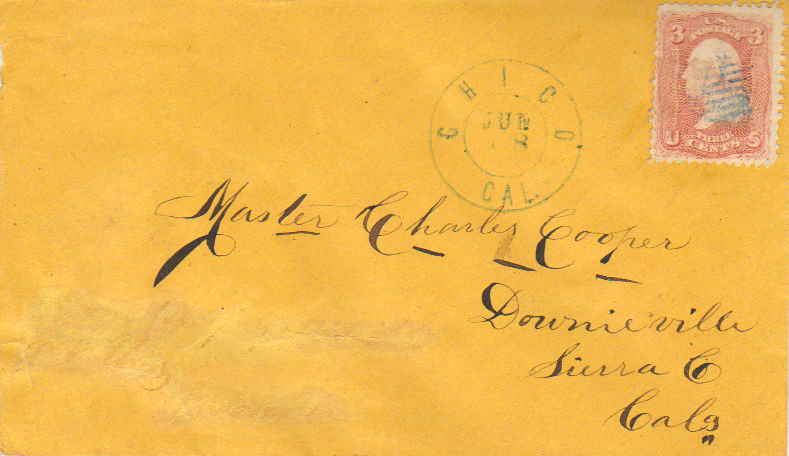 U.S. POSTAGE
3 3
THREE
U CENTS S
CHICO
JUN
CAL.
Master Charles Cooper
Downieville
Sierra Co
Cala